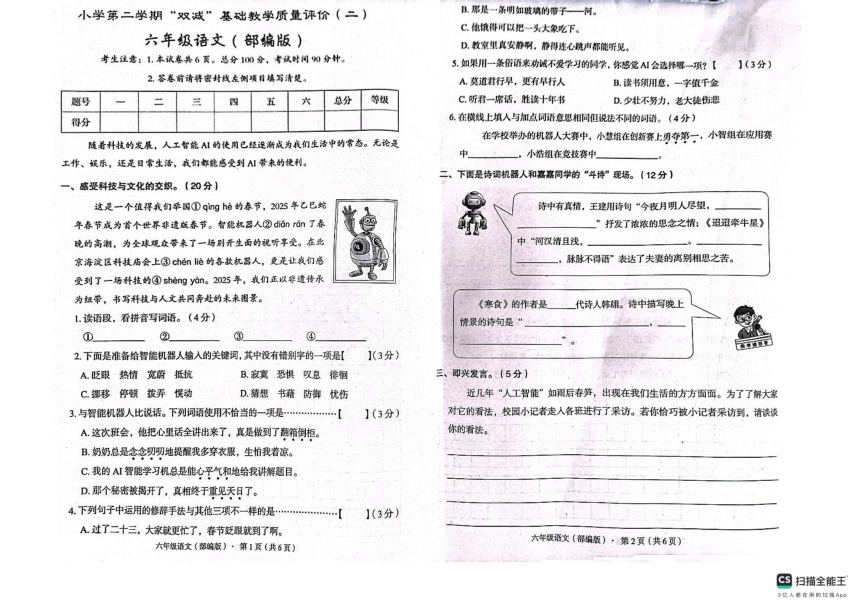 小学第二学期“双减”基础教学质量评价（二）
六年级语文（部编版）
考生注意：1. 本试卷共 6 页。总分 100 分，考试时间 90 分钟。
2. 答卷前请将密封线左侧项目填写清楚。
题号 一 二 三 四 五 六 总分 等级
得分
随着科技的发展，人工智能 AI 的使用已经逐渐成为我们生活中的常态。无论是
工作、娱乐，还是日常生活，我们都能感受到 AI 带来的便利。
一、感受科技与文化的交织。（20 分）
这是一个值得我们举国① qìng hè 的春节，2025 年乙巳蛇
年春节成为首个世界非遗版春节。智能机器人② diǎn rán 了春
晚的高潮，为全球观众带来了一场别开生面的视听享受。在北
京海淀区科技庙会上③ chén liè 的各款机器人，更是让我们感
受到了一场科技的④ shèng yàn。2025 年，我们正以非遗传承
为纽带，书写科技与人文共同奔赴的未来图景。
1. 读语段，看拼音写词语。（4 分）
①________ ②________ ③________ ④________
2. 下面是准备给智能机器人输入的关键词，其中没有错别字的一项是【 】（3 分）
A. 眨眼 热情 宽蔚 抵抗 B. 寂寞 恐惧 叹息 徘徊
C. 挪移 停顿 拨弄 愰动 D. 猜想 书藉 防御 忧伤
3. 与智能机器人比说话。下列词语使用不恰当的一项是………………【 】（3 分）
A. 这次班会，他把心里话全讲出来了，真是做到了翻箱倒柜。
B. 奶奶总是念念叨叨地提醒我多穿衣服，生怕我着凉。
C. 我的 AI 智能学习机总是能心平气和地给我讲解题目。
D. 那个秘密被揭开了，真相终于重见天日了。
4. 下列句子中运用的修辞手法与其他三项不一样的是…………………【 】（3 分）
A. 过了二十三，大家就更忙了，春节眨眼就到了啊。
六年级语文（部编版）· 第 1 页（共 6 页）
B. 那是一条明如玻璃的带子——河。
C. 他饿得可以把一头大象吃下。
D. 教室里真安静啊，静得连心跳声都能听见。
5. 如果用一条俗语来劝诫不爱学习的同学，你感觉 AI 会选择哪一项？【 】（3 分）
A. 莫道君行早，更有早行人 B. 读书须用意，一字值千金
C. 听君一席话，胜读十年书 D. 少壮不努力，老大徒伤悲
6. 在横线上填入与加点词语意思相同但说法不同的词语。（4 分）
在学校举办的机器人大赛中，小慧组在创新赛上勇夺第一，小智组在应用赛
中__________，小浩组在竞技赛中__________。
二、下面是诗词机器人和嘉嘉同学的“斗诗”现场。（12 分）
诗中有真情，王建用诗句“今夜月明人尽望，________
________________”抒发了浓浓的思念之情；《迢迢牵牛星》
中“河汉清且浅，________________。________________
________，脉脉不得语”表达了夫妻的离别相思之苦。
《寒食》的作者是______代诗人韩翃。诗中描写晚上
情景的诗句是“________________，________
________________”。
三、即兴发言。（5 分）
近几年“人工智能”如雨后春笋，出现在我们生活的方方面面。为了了解大家
对它的看法，校园小记者走入各班进行了采访。若你恰巧被小记者采访到，请谈谈
你的看法。
六年级语文（部编版）· 第 2 页（共 6 页）
CS 扫描全能王
3亿人都在用的扫描App